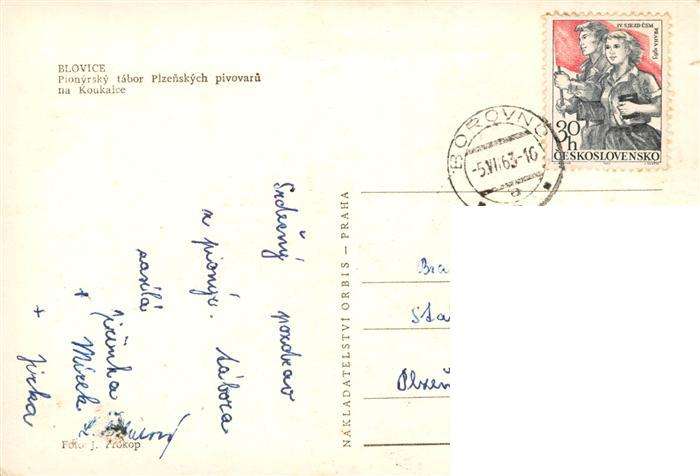 BLOVICE
Pionýrský tábor Plzeňských pivovarů
na Koukalce
IV. SJEZD ČSM
PRAHA 1963
30 h
ČESKOSLOVENSKO
BOROVNO
-5.VI.63-16
a
Srdečný pozdrav
z pionýr. tábora
zasílá
Jiřinka
+ Mirek
+ Jirka
NAKLADATELSTVÍ ORBIS — PRAHA
Plzeň
Foto J. Prokop